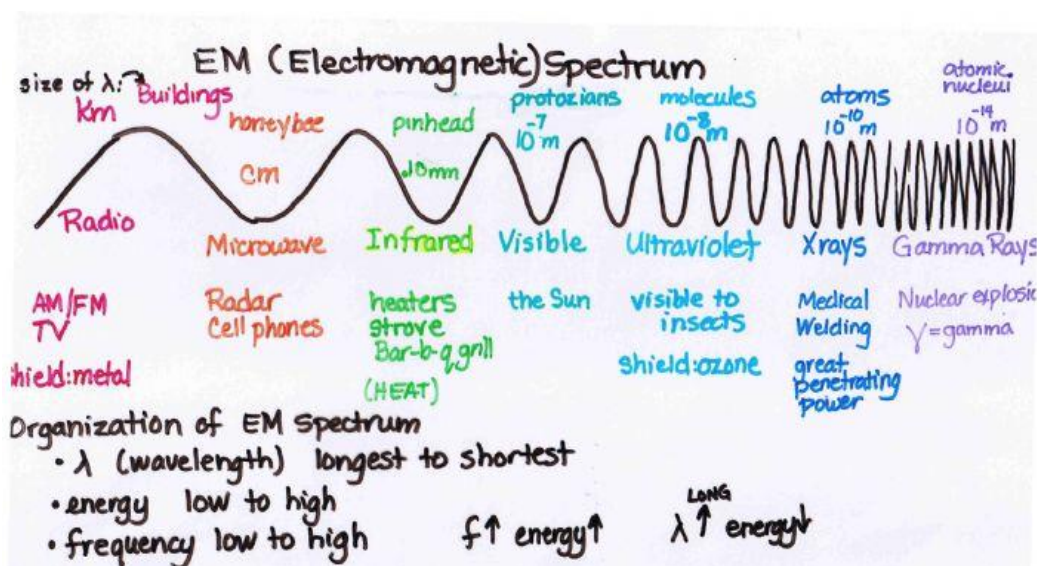 EM (Electromagnetic) Spectrum
size of λ: Buildings
Km
honeybee
cm
pinhead
protozians
10⁻⁷ m
molecules
10⁻⁸ m
atoms
10⁻¹⁰ m
atomic nuclei
10⁻¹⁴ m
Radio
Microwave
Infrared
Visible
Ultraviolet
Xrays
Gamma Rays
AM/FM
TV
shield:metal
Radar
Cell phones
heaters
strove
Bar-b-q grill
(HEAT)
the Sun
visible to
insects
shield:ozone
Medical
Welding
great
penetrating
power
Nuclear explosio
γ=gamma
Organization of EM Spectrum
· λ (wavelength) longest to shortest
· energy low to high
· frequency low to high
f↑ energy↑
LONG
λ↑ energy↓